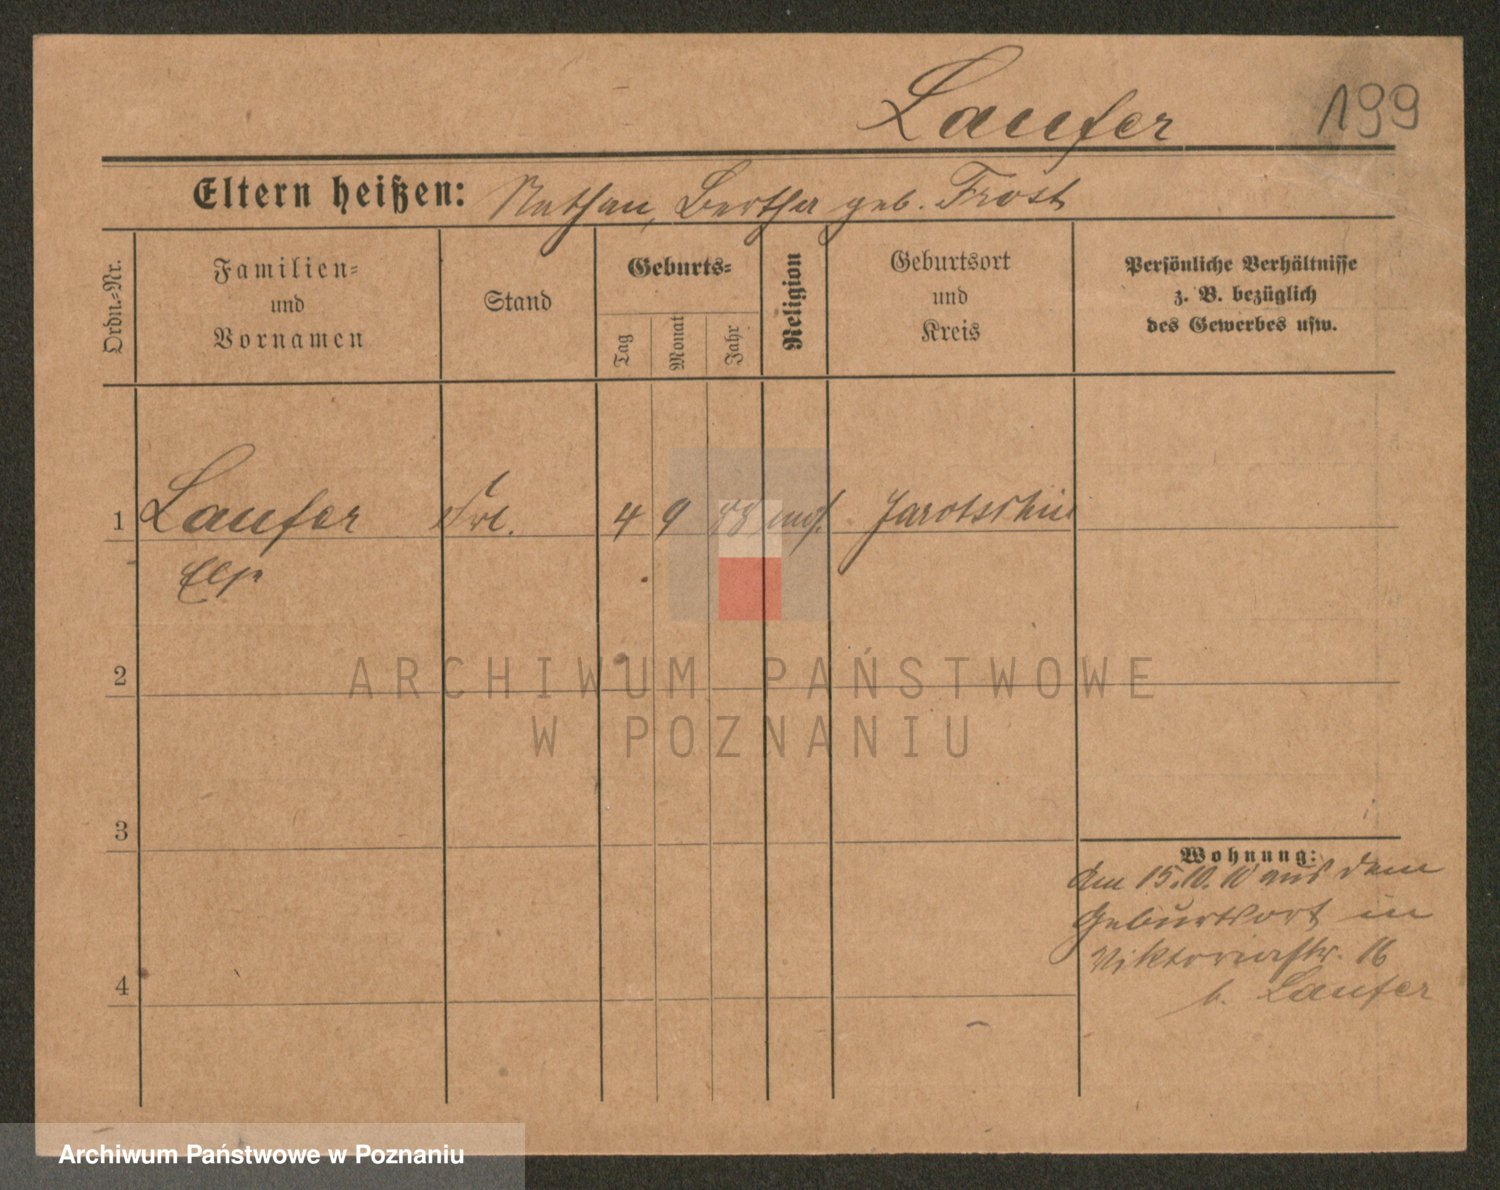 Laufer
199
Eltern heißen: Nathan, Bertha geb. Frost
Ordn.-Nr.
Familien-
und
Vornamen
Stand
Geburts-
Tag
Monat
Jahr
Religion
Geburtsort
und
Kreis
Persönliche Verhältnisse
z. B. bezüglich
des Gewerbes usw.
1 Laufer Frl. 4 9 88 mos. Jarotschin
2
3
4
Wohnung:
Am 15.10.10 aus dem
Geburtsort in
Viktoriastr. 16
b. Laufer
ARCHIWUM PAŃSTWOWE
W POZNANIU
Archiwum Państwowe w Poznaniu